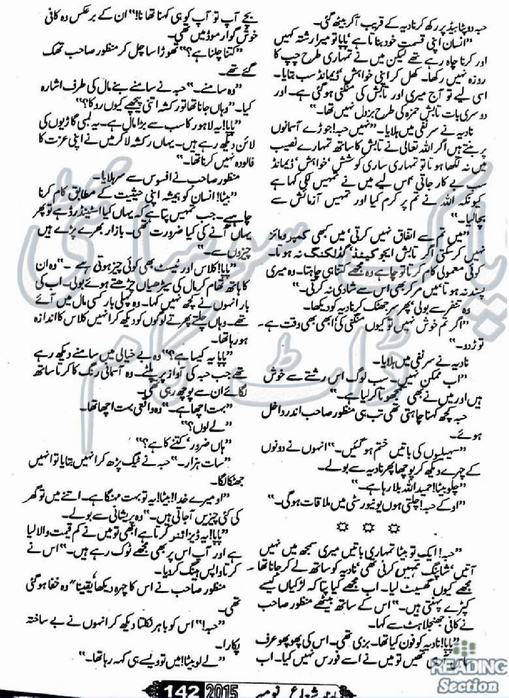 حبہ دوپٹا بیڈ پر رکھ کر نادیہ کے قریب آکر بیٹھ گئی۔
"انسان اپنی قسمت خود بناتا ہے پاپا تو میرا رشتہ کہیں
اور کرنا چاہ رہے تھے لیکن میں نے تمہاری طرح چپ کا
روزہ نہیں رکھا۔ کھل کر اپنی خواہش، ڈیمانڈ سب بتایا۔
اسی لیے تو آج میری اور تابش کی منگنی ہو گئی ہے۔ اور
دوسری بات تابش حمزہ کی طرح بزدل نہیں تھا۔"
نادیہ نے سر نفی میں ہلایا۔ "نہیں حبہ! جوڑے آسمانوں
پر بنتے ہیں اگر اللہ تعالیٰ نے تابش کا ساتھ تمہارے نصیب
میں نہ لکھا ہوتا تو تمہاری ساری کوشش، خواہش، ڈیمانڈ
سب بے کار جاتی، اس لیے میں نے تمہیں لکی کہا ہے
کیونکہ اللہ نے تم پر کرم کیا اور تمہیں آزمائش سے
بچالیا۔"
"میں تم سے اتفاق نہیں کرتی، میں کبھی کمپرومائز
نہیں کر سکتی اگر تابش ایجوکیٹڈ، گڈ لکنگ نہ ہوتا،
کوئی معمولی کام کرتا تو چاہے وہ مجھے کتنا ہی چاہتا۔ وہ میری
پسند نہ ہوتا، میں مر کر بھی اس سے شادی نہ کرتی۔"
وہ تنفر سے بولی پھر سر جھٹک کر نادیہ کو دیکھا۔
"اگر تم خوش نہیں تو کیوں منگنی کی، ابھی بھی وقت ہے۔
توڑ دو۔"
نادیہ نے سر نفی میں ہلایا۔
"اب ممکن نہیں۔ سب لوگ اس رشتے سے خوش
ہیں اور میں نے بھی سمجھوتا کر لیا ہے۔"
حبہ کچھ کہنا چاہتی تھی تب ہی منظور صاحب اندر داخل
ہوئے۔
"سہیلیوں کی باتیں ختم ہو گئیں۔" انہوں نے دونوں
کے چہرے دیکھ کر پوچھا پھر نادیہ سے بولے۔
"چلو بیٹا! حمید اللہ بلا رہا ہے۔"
"اوکے حبہ! چلتی ہوں یونیورسٹی میں ملاقات ہوگی۔"
* * *
"حبہ! ایک تو بیٹا تمہاری باتیں میری سمجھ میں نہیں
آتیں، شاپنگ تمہیں کرنی تھی، نادیہ کو ساتھ لے کر جانا تھا۔
مجھے کیوں گھسیٹ لیا۔ اب مجھے کیا پتا کہ لڑکیاں کیسے
کپڑے پہنتی ہیں۔" اس کے ساتھ بیٹھے منظور صاحب
نے کافی جھنجلاہٹ سے کہا۔
"پاپا! نادیہ کو فون کیا تھا۔ بزی تھی۔ اس کی پھوپھو عرف
تھیں تو میں نے اسے فورس نہیں۔ اب
بجے آپ تو آپ کو ہی کہنا تھا نا!" ان کے برعکس وہ کافی
خوش گوار موڈ میں تھی۔
"کتنا چلنا ہے؟" تھوڑا سا چل کر منظور صاحب تھک
گئے تھے۔
"وہ سامنے۔" حبہ نے سامنے بنے مال کی طرف اشارہ
کیا۔ "وہاں جانا تھا تو رکشہ اتنی پیچھے کیوں روکا؟"
"پاپا! یہ لاہور کا سب سے بڑا مال ہے۔ یہ لمبی گاڑیوں کی
لائن دیکھ رہے ہیں۔ یہاں رکشہ لا کر میں نے اپنی عزت کا
فالودہ نہیں کرنا تھا۔"
منظور صاحب نے افسوس سے سر ہلایا۔
"بیٹا! انسان کو ہمیشہ اپنی حیثیت کے مطابق کام کرنا
چاہیے۔ جب تمہیں پتا ہے کہ یہاں کیا اسٹینڈرڈ ہے تو پھر
یہاں آنے کی کیا ضرورت تھی۔ بازار بھرے پڑے ہیں
چیزوں سے۔"
"پاپا! کلاس اور ٹیسٹ بھی کوئی چیز ہوتی ہے۔" وہ ان
کا ہاتھ تھام کر مال کی سیڑھیاں چڑھتے ہوئے بولی۔ اب کی
بار انہوں نے کچھ نہیں کہا۔ وہ پہلی بار کسی مال میں آئے
تھے۔ وہاں چلتے پھرتے لوگوں کو دیکھ کر انہیں کلاس کا اندازہ
ہو رہا تھا۔
"پاپا یہ کیسا ہے؟" وہ بے خیالی میں سامنے دیکھ رہے
تھے جب حبہ کی آواز پر پلٹے۔ وہ آسمانی رنگ کا کرتا ساتھ
لگائے ان سے پوچھ رہی تھی۔
"بہت اچھا ہے۔" وہ واقعی بہت اچھا تھا۔
"لے لوں؟"
"ہاں ضرور، کتنے کا ہے؟"
"سات ہزار۔" حبہ نے ٹیگ پڑھ کر انہیں بتایا تو انہیں
جھٹکا لگا۔
"او میرے خدا! بیٹا! یہ تو بہت مہنگا ہے۔ اتنے میں تو گھر
کی کئی چیزیں آجاتی ہیں۔" وہ پریشانی سے بولے۔
"پاپا! یہ ڈیزائنر کرتا ہے ابھی تو میں نے کم قیمت والا لیا
ہے اور آپ اس پر بھی مجھے ٹوک رہے ہیں۔" اس نے
کرتا واپس ہینگ کر دیا۔
منظور صاحب نے اس کا چہرہ دیکھا یقیناً وہ خفا ہو گئی
تھی۔
"حبہ!" اس کو باہر نکلتا دیکھ کر انہوں نے بے ساختہ
پکارا۔
"لے لو بیٹا! میں تو ویسے ہی کہہ رہا تھا۔"
پاک سوسائٹی
ڈاٹ کام
READING
Section
ماہنامہ شعاع نومبر 2015 142